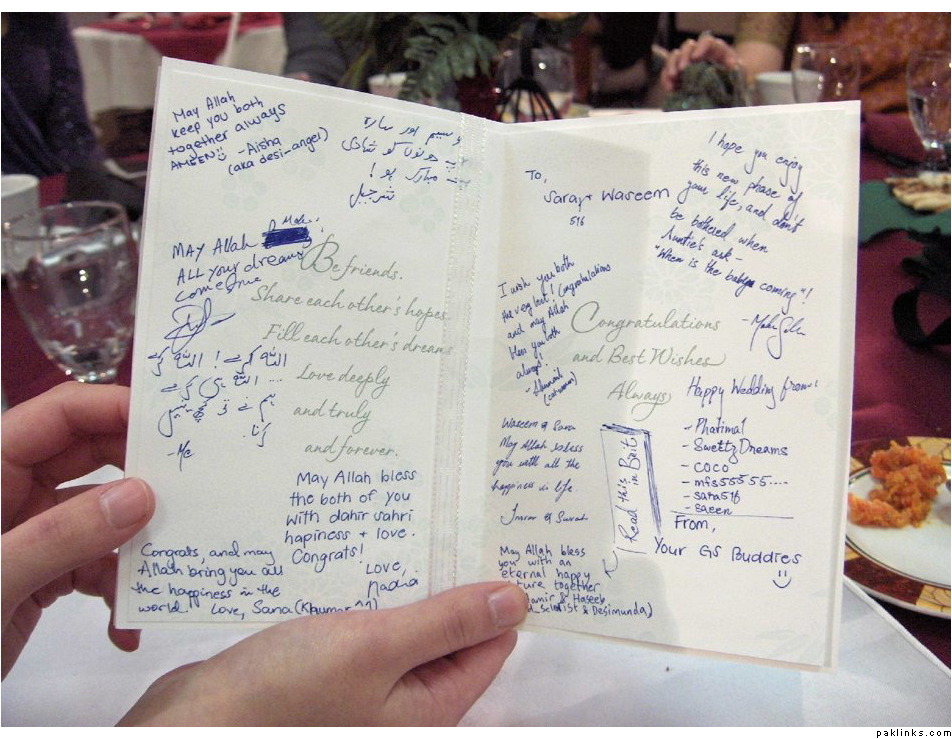 May Allah
keep you both
together always
AMEEN -Aisha
(aka desi-angel)
وسیم اور سارہ
دونوں کو شادی
مبارک ہو!
شرجیل
MAY Allah Make
ALL your dreams
come true
Be friends.
Share each other's hopes.
Fill each other's dreams
Love deeply
and truly
and forever.
-Me
May Allah bless
the both of you
with dahir sahri
hapiness + love.
Congrats!
Love,
Nadia
Congrats, and may
Allah bring you all
the happiness in the
world! Love, Sana (Khumar^^)
To,
Sara + Waseem
516
I hope you enjoy
this new phase of
your life, and don't
be bothered when
Auntie's ask -
"When is the baby coming"!
I wish you both
the very best! Congratulations
and may Allah
bless you both
always!
(catwoman)
Congratulations
and Best Wishes
Always
Waseem & Sara
May Allah bless
you with all the
happiness in life.
Imran &
Read this
in Brit
May Allah bless
you with an
eternal happy
ture together
amir & Haseeb
& Desimunda)
Happy Wedding from:
- Pharimal
- SweettzDreams
- coco
- mfs55555....
- sara516
- saeen
From,
Your GS Buddies
paklinks.com